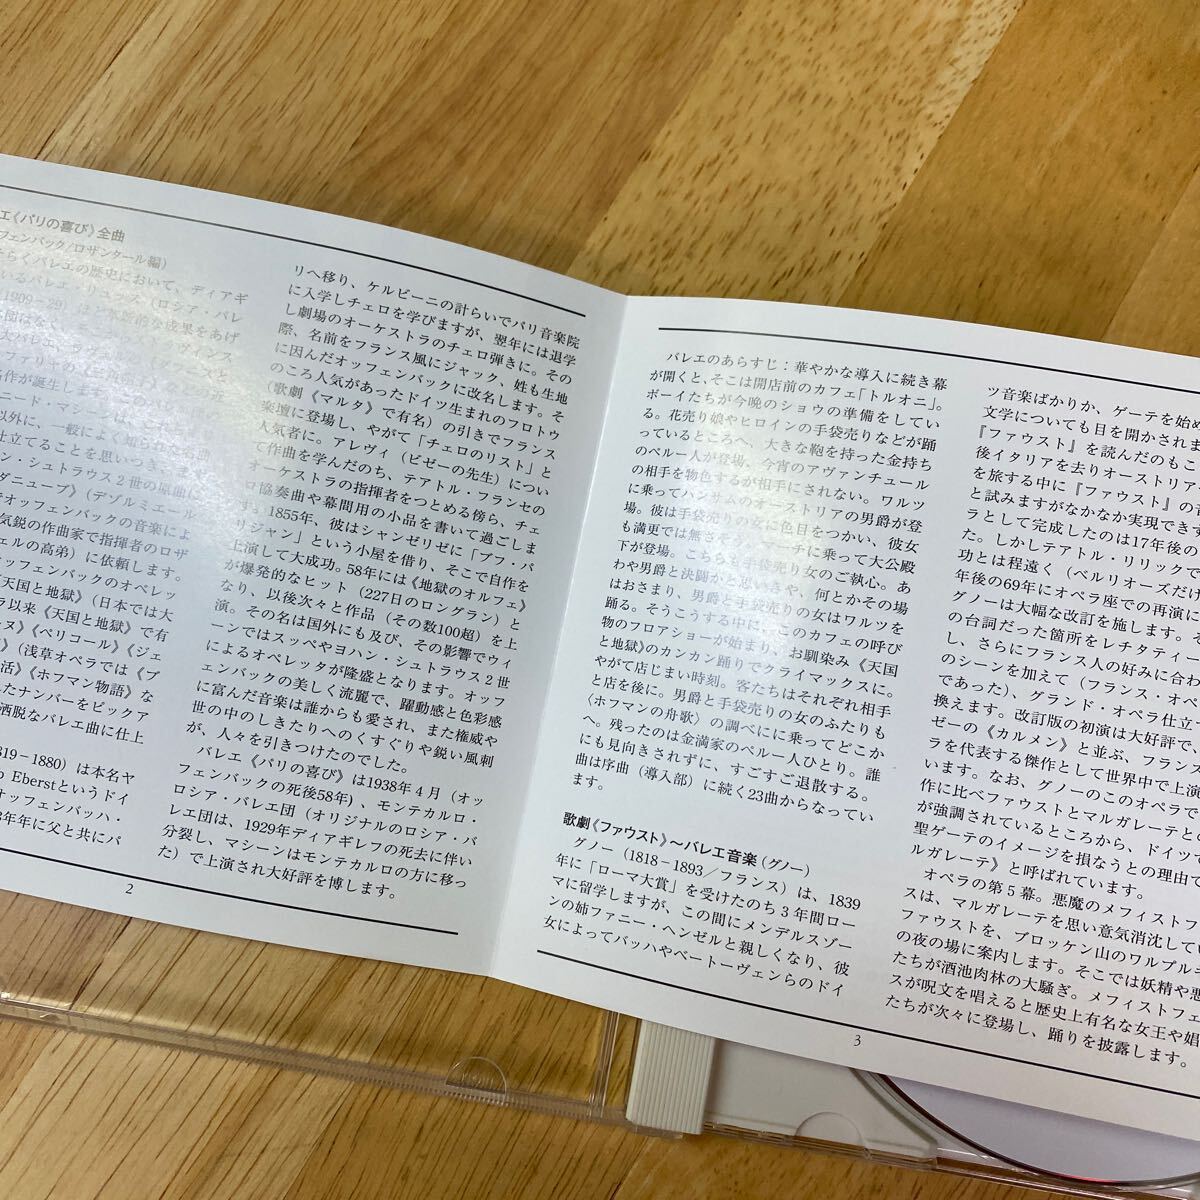 エ《パリの喜び》全曲
フェンバック/ロザンタール編)
らくバレエの歴史において、ディアギ
いるバレエ・リュッス(ロシア・バレ
1909-29)ほど
以外に、一般によく知られた名
仕立てることを思いつき
ン・シュトラウス2世の原曲に
ダニューブ》(デゾルミエール
オッフェンバックの音楽によ
気鋭の作曲家で指揮者のロザ
ェルの高弟)に依頼します。
ッフェンバックのオペレッ
天国と地獄》(日本では大
ラ以来《天国と地獄》で有
ーヌ》《ペリコール》《ジェ
》(浅草オペラでは《ブ
活》《ホフマン物語》な
れたナンバーをピックア
洒脱なバレエ曲に仕上
819-1880)は本名ヤ
b Eberstというドイ
オッフェンバッハ・
3年年に父と共にパ
リへ移り、ケルビーニの計らいでパリ音楽院
に入学しチェロを学びますが、翌年には退学
し劇場のオーケストラのチェロ弾きに。その
際、名前をフランス風にジャック、姓も生地
に因んだオッフェンバックに改名します。そ
のころ人気があったドイツ生まれのフロトウ
(歌劇《マルタ》で有名)の引きでフランス
楽壇に登場し、やがて「チェロのリスト」と
人気者に。アレヴィ(ビゼーの先生)につい
て作曲を学んだのち、テアトル・フランセの
オーケストラの指揮者をつとめる傍ら、チェ
ロ協奏曲や幕間用の小品を書いて過ごしま
す。1855年、彼はシャンゼリゼに「ブフ・パ
リジャン」という小屋を借り、そこで自作を
上演して大成功。58年には《地獄のオルフェ》
が爆発的なヒット(227日のロングラン)と
なり、以後次々と作品(その数100超)を上
演。その名は国外にも及び、その影響でウィ
ーンではスッペやヨハン・シュトラウス2世
によるオペレッタが隆盛となります。オッフ
ェンバックの美しく流麗で、躍動感と色彩感
に富んだ音楽は誰からも愛され、また権威や
世の中のしきたりへのくすぐりや鋭い風刺
が、人々を引きつけたのでした。
バレエ《パリの喜び》は1938年4月(オッ
フェンバックの死後58年)、モンテカルロ・
ロシア・バレエ団(オリジナルのロシア・バ
レエ団は、1929年ディアギレフの死去に伴い
分裂し、マシーンはモンテカルロの方に移っ
た)で上演され大好評を博します。
2
バレエのあらすじ：華やかな導入に続き幕
が開くと、そこは開店前のカフェ「トルオニ」。
ボーイたちが今晩のショウの準備をしてい
る。花売り娘やヒロインの手袋売りなどが踊
っているところへ、大きな鞄を持った金持ち
のペルー人が登場、今宵のアヴァンチュール
の相手を物色するが相手にされない。ワルツ
に乗ってハンサムのオーストリアの男爵が登
場。彼は手袋売りの女に色目をつかい、彼女
も満更では無さそう。マーチに乗って大公殿
下が登場。こちらも手袋売り女のご執心。あ
わや男爵と決闘かと思いきや、何とかその場
はおさまり、男爵と手袋売りの女はワルツを
踊る。そうこうする中に、このカフェの呼び
物のフロアショーが始まり、お馴染み《天国
と地獄》のカンカン踊りでクライマックスに。
やがて店じまい時刻。客たちはそれぞれ相手
と店を後に。男爵と手袋売りの女のふたりも
〈ホフマンの舟歌〉の調べにに乗ってどこか
へ。残ったのは金満家のペルー人ひとり。誰
にも見向きされずに、すごすご退散する。
曲は序曲(導入部)に続く23曲からなってい
ます。
歌劇《ファウスト》～バレエ音楽(グノー)
グノー(1818-1893／フランス)は、1839
年に「ローマ大賞」を受けたのち3年間ロー
マに留学しますが、この間にメンデルスゾー
ンの姉ファニー・ヘンゼルと親しくなり、彼
女によってバッハやベートーヴェンらのドイ
ツ音楽ばかりか、ゲーテを始め
文学についても目を開かされま
『ファウスト』を読んだのもこ
後イタリアを去りオーストリア・
を旅する中に『ファウスト』の音
と試みますがなかなか実現できず
ラとして完成したのは17年後の
た。しかしテアトル・リリックで
功とは程遠く(ベルリオーズだけ
年後の69年にオペラ座での再演に
グノーは大幅な改訂を施します。そ
の台詞だった箇所をレチタティー
し、さらにフランス人の好みに合わ
のシーンを加えて(フランス・オペ
であった)、グランド・オペラ仕立
換えます。改訂版の初演は大好評で、
ゼーの《カルメン》と並ぶ、フランス
ラを代表する傑作として世界中で上演
います。なお、グノーのこのオペラで
作に比べファウストとマルガレーテと
が強調されているところから、ドイツで
聖ゲーテのイメージを損なうとの理由で
ルガレーテ》と呼ばれています。
オペラの第5幕。悪魔のメフィストフ
スは、マルガレーテを思い意気消沈してい
ファウストを、ブロッケン山のワルプル
の夜の場に案内します。そこでは妖精や悪
たちが酒池肉林の大騒ぎ。メフィストフェ
スが呪文を唱えると歴史上有名な女王や娼
たちが次々に登場し、踊りを披露します。
3